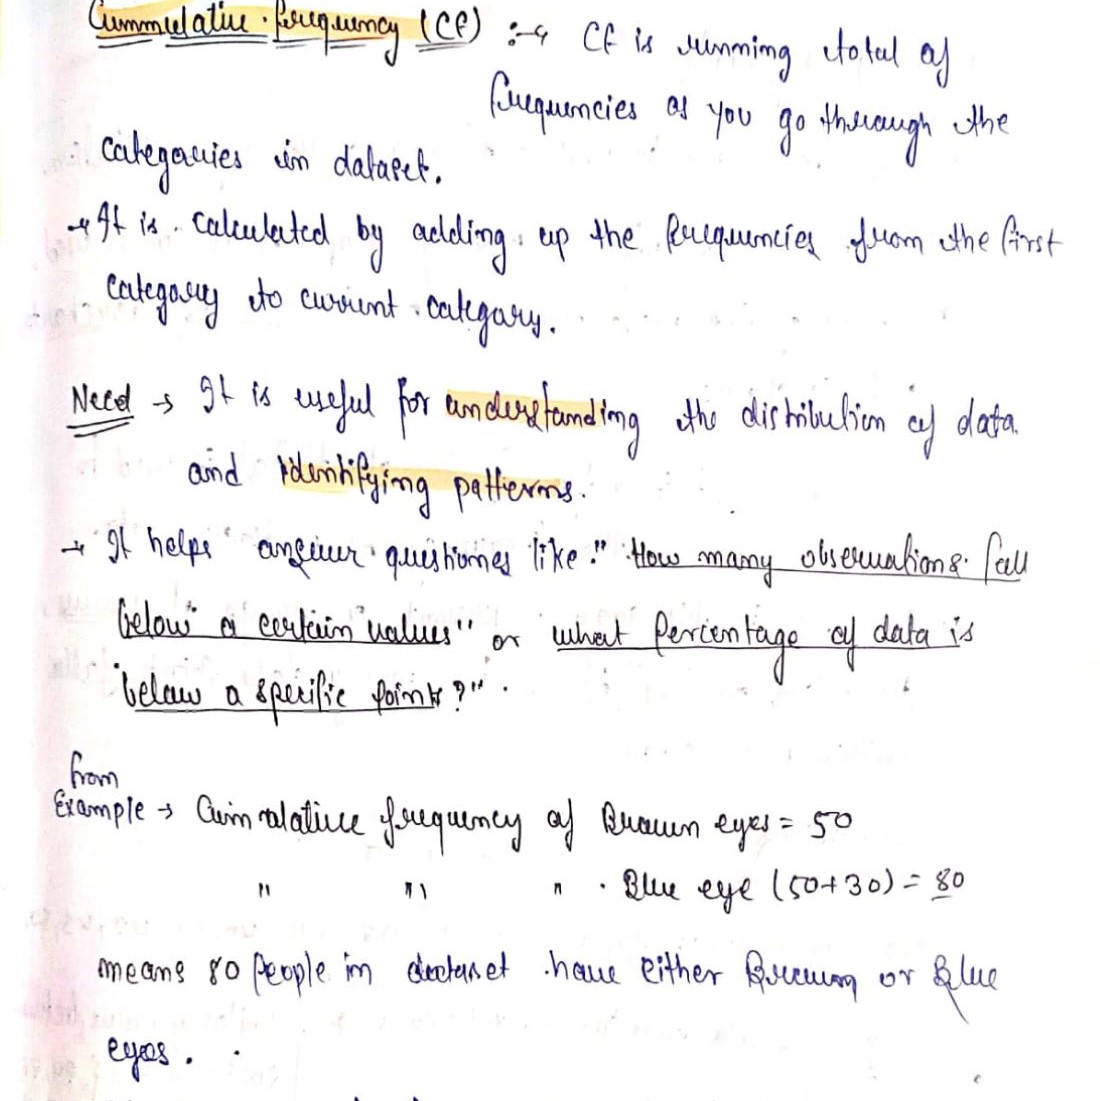 Cummulative frequency (Cf) :→ Cf is running total of
frequencies as you go through the
categories in dataset.
→ It is calculated by adding up the frequencies from the first
category to current category.
Need → It is useful for understanding the distribution of data
and identifying patterns.
→ It helps answer questiones like:" How many observations fall
below a certain values" or what percentage of data is
below a specific points?".
from
Example → Cumulative frequency of Brown eyes = 50
" " " Blue eye (50+30) = 80
means 80 people in dataset have either Brown or Blue
eyes.